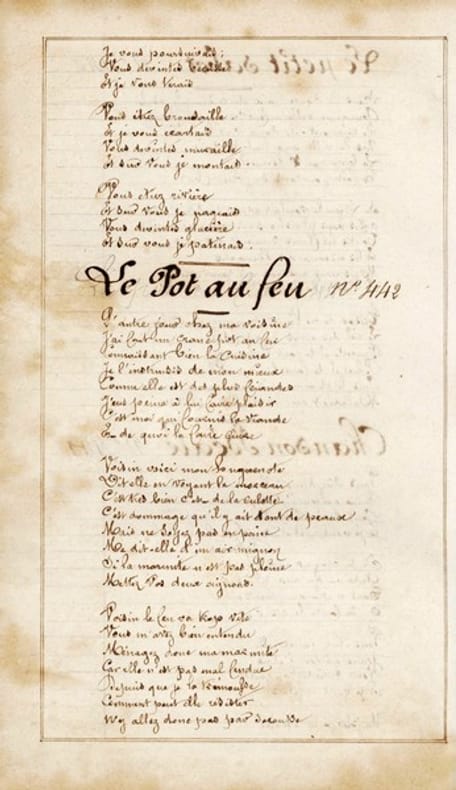 Je vous poursuivais;
Vous devintes
Et je vous
Vous étiez broudaille
Et je vous écartais
Vous devintes muraille
Et sur vous je montais.
Vous etiez rivière
Et sur vous je nageais
Vous devintes glacière
Et sur vous je patinais.
Le Pot au feu n° 442
L'autre jour chez ma voisine
J'ai fait un grand pot au feu
Connaissant bien la cuisine
Je l'instruisis de mon mieux
Comme elle est des plus friandes
J'eus peine à lui faire plaisir
C'est moi qui fournis la viande
Et de quoi la faire cuire
Voisin voici mon huguenote
Dit elle en voyant le morceau
C'est très bien c'est de la culotte
C'est dommage qu'il y ait tant de peaux
Mais ne soyez pas en peine
Me dit-elle d'un air mignon
Si la marmite n'est pas pleine
Mettez vos deux oignons.
Voisin le feu va trop vite
Vous m'avez bien entendu
Ménagez donc ma marmite
Car elle n'est pas mal fendue
Depuis que je la trémousse
Comment peut elle résister
N'y allez donc pas par secousse